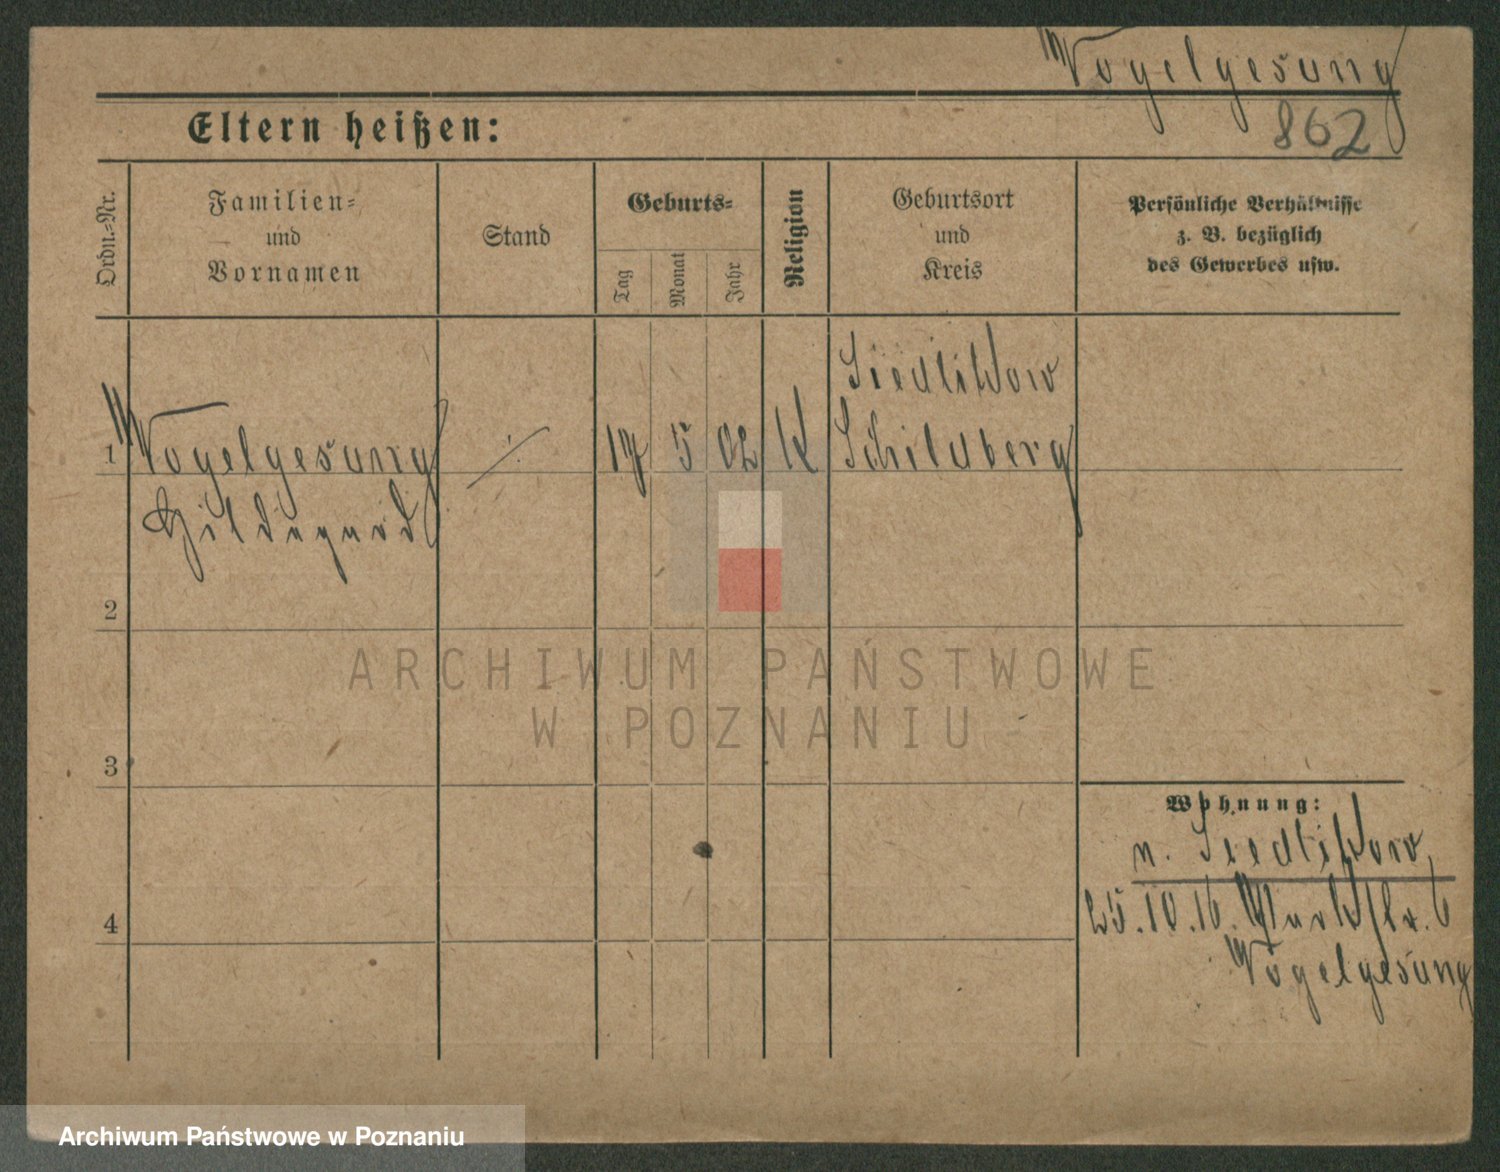 Vogelgesang
862
Eltern heißen:
Ordn.-Nr.
Familien- und Vornamen
Stand
Geburts-
Tag
Monat
Jahr
Religion
Geburtsort und Kreis
Persönliche Verhältnisse
z. B. bezüglich
des Gewerbes usw.
Siedlikow
1 Vogelgesang 17 5 02 K Schildberg
Hildegard
2
ARCHIWUM PAŃSTWOWE
W POZNANIU
3
Wohnung:
n. Siedlikow
4
25.10.16. 6
Vogelgesang
Archiwum Państwowe w Poznaniu